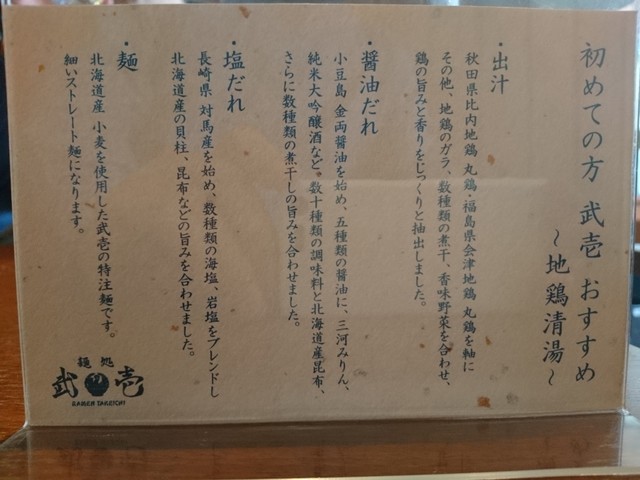 初めての方 武壱 おすすめ
～地鶏清湯～
・出汁
秋田県比内地鶏 丸鶏・福島県会津地鶏 丸鶏を軸に
その他、地鶏のガラ、数種類の煮干、香味野菜を合わせ、
鶏の旨みと香りをじっくりと抽出しました。
・醤油だれ
小豆島 金両醤油を始め、五種類の醤油に、三河みりん、
純米大吟醸酒など。数十種類の調味料と北海道産昆布、
さらに数種類の煮干しの旨みを合わせました。
・塩だれ
長崎県 対馬産を始め、数種類の海塩、岩塩をブレンドし
北海道産の貝柱、昆布などの旨みを合わせました。
・麺
北海道産 小麦を使用した武壱の特注麺です。
細いストレート麺になります。
麺処
武壱